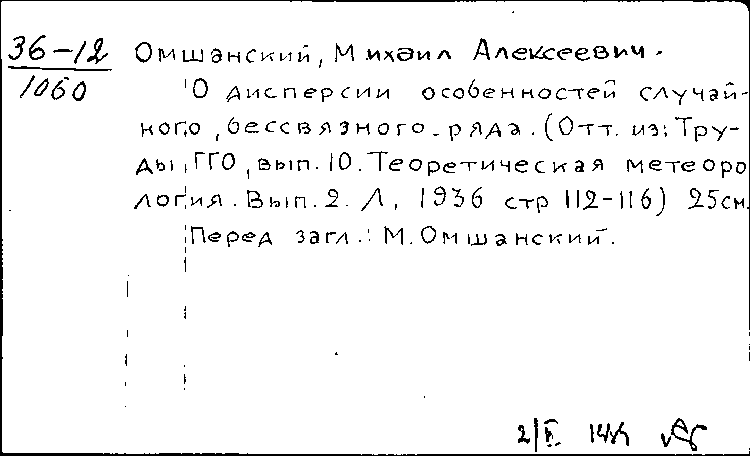 36-12
1060
Омшанский, Михаил Алексеевич.
О дисперсии особенностей случай-
ного, бессвязного ряда. (Отт. из: Тру-
ды, ГГО, вып. 10. Теоретическая метеоро
логия. Вып. 2. Л, 1936 стр 112-116) 25см.
Перед загл.: М. Омшанский.